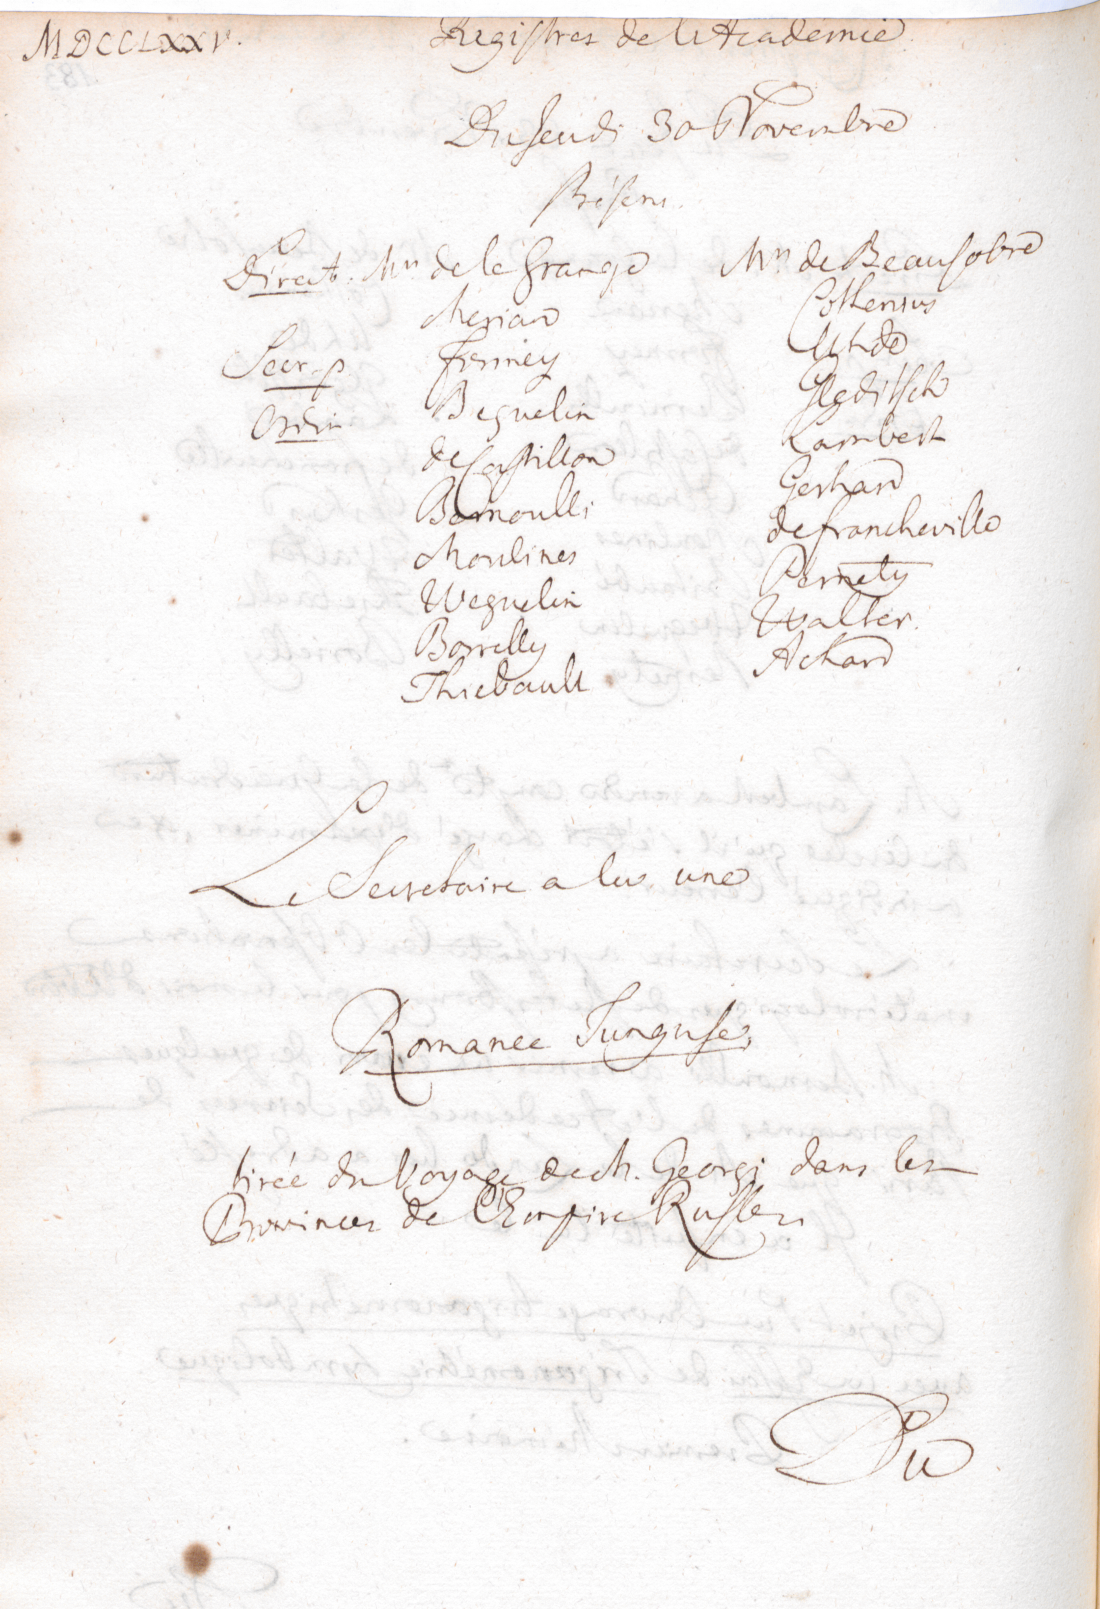 MDCCLXXV.
Registres de l'Academie
Du Jeudi 30 Novembre
Présens.
Direct. Mrs de la Grange
Merian
Secr. p. Formey
Ordin Beguelin
de Castillon
Bernoulli
Moulines
Weguelin
Borrelly
Thiebault
Mrs de Beausobre
Cothenius
Uhde
Gleditsch
Lambert
Gerhard
de Francheville
Pernety
Walter.
Achard
Le Secretaire a lu une
Romance Tunguse,
tirée du Voyage de M. Georgi dans les
Provinces de l'Empire Russien.
Du